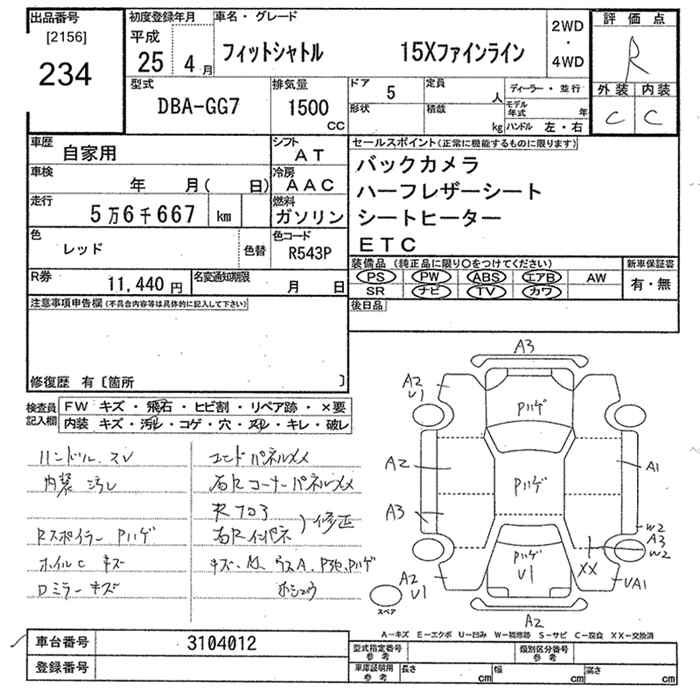 出品番号
[2156]
234
初度登録年月
平成
25 4月
車名・グレード
フィットシャトル 15Xファインライン
2WD
・
4WD
評価点
R
外装 内装
C C
型式
DBA-GG7
排気量
1500
CC
ドア
5
定員
人
形状
積載
kg
ディーラー・並行
モデル年式 年
ハンドル 左・右
車歴
自家用
シフト
AT
車検
年 月( 日)
冷房
AAC
走行
5万6千667 km
燃料
ガソリン
色
レッド
色替
色コード
R543P
R券
11,440円
名変通知期限
月 日
セールスポイント(正常に機能するものに限ります)
バックカメラ
ハーフレザーシート
シートヒーター
ETC
装備品(純正品に限り○をつけてください)
新車保証書
PS PW ABS エアB AW
SR ナビ TV カワ
有・無
後日品
注意事項申告欄(不具合内容等は具体的に記入して下さい)
修復歴 有〔箇所 〕
検査員記入欄
FW キズ・飛石・ヒビ割・リペア跡・×要
内装 キズ・汚れ・コゲ・穴・スレ・キレ・破レ
ハンドル スレ
内装 汚れ
Rスポイラー Pハゲ
ホイルC キズ
Dミラー キズ
エンドパネルメメ
右Rコーナーパネルメメ
Rフロア
右Rインパネ
)修正
A3
A2
U1
Pハゲ
A2
Pハゲ
A1
A3
W2
A3
W2
Pハゲ
U1
XX
A2
U1
UA1
A2
スペア
A－キズ E－エクボ U－凹み W－補修跡 S－サビ C－腐食 XX－交換済
車台番号
3104012
登録番号
型式指定番号
参考
類別区分番号
参考
車庫証明用
参考
長さ cm
幅 cm
高さ cm